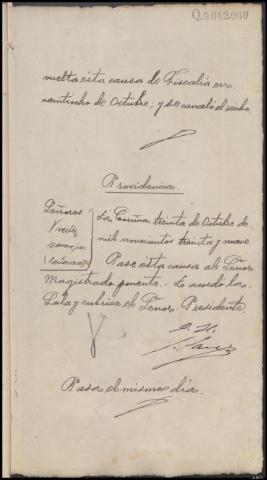 Q.0.042069
vuelta esta causa de Fiscalia en
veintiocho de Octubre; y se canceló el recibo.
Providencia.
Señores.
La Coruña, treinta de Octubre de
mil novecientos treinta y nueve.
Pase esta causa al Señor
Magistrado ponente.- Lo acordó la
Sala y rubrica el Señor Presidente.
Pasa el mismo día.